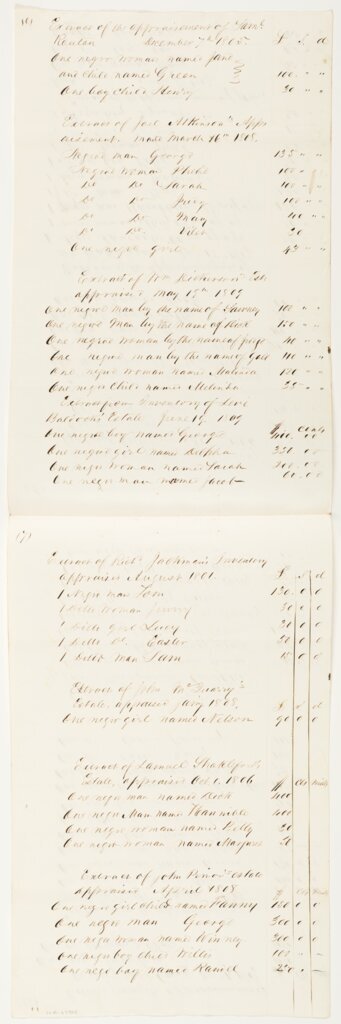 (6) Extract of the appraisement of Saml.
December 7th 1805. £ S d
One negro woman name Jane
and child named Green 100 " "
One boy child Henry 30 " "
Extract of Joel Atkinson's Appr
aisement. made March 16th 1808.
Negro man George 135 " "
Negro woman Phebe 100 " "
Do Do Sarah 100 " "
Do Do Jucy 100 " "
Do Do May 40 " "
Do Do 30
One negro girl 45 " "
Extract of Wm Richerson Est
appraised May 15th 1809
One negro man by the name of 100 " "
One negro Man by the name of Dick 150 " "
One negroe woman by the name of 40 " "
One negro man by the name of 110 " "
One negroe woman named Malinda 120 " "
One negro Child named Melinda 35 " "
Extract from Inventory of Levi
Estate June 1809
One negroe boy named George $400.00 cents
One negro girl named 350.00
One negro woman named Sarah 300.00
One negro man named Jacob 60.00
(7)
Extract of Richd. Jackman's Inventory
appraised August 1801 £ S d
1 Negro man Tom 130 0 0
1 ditto woman Jenny 50 0 0
1 ditto girl Lucy 30 0 0
1 ditto Do. Easter 20 0 0
1 ditto man Sam 15 0 0
Extract of John McQuary's
Estate, appraised Jany 1808. £ S d
One negro girl named Nelson 90 0 0
Extract of Samuel Shackelford's
Estate, appraised Oct 1. 1806 $ Cts Mills
One negro man named Dick 400
One negro Man name Hannible 400
One negroe woman named 20
One negro woman named 20
Extract of John Prior's estate
appraised April 1808
One negro girl child name Fanny 150 0 0
One negro man George 300 0 0
One negro woman name Winney 300 0 0
One negro boy child Willis 100
One negro boy named Daniel 250